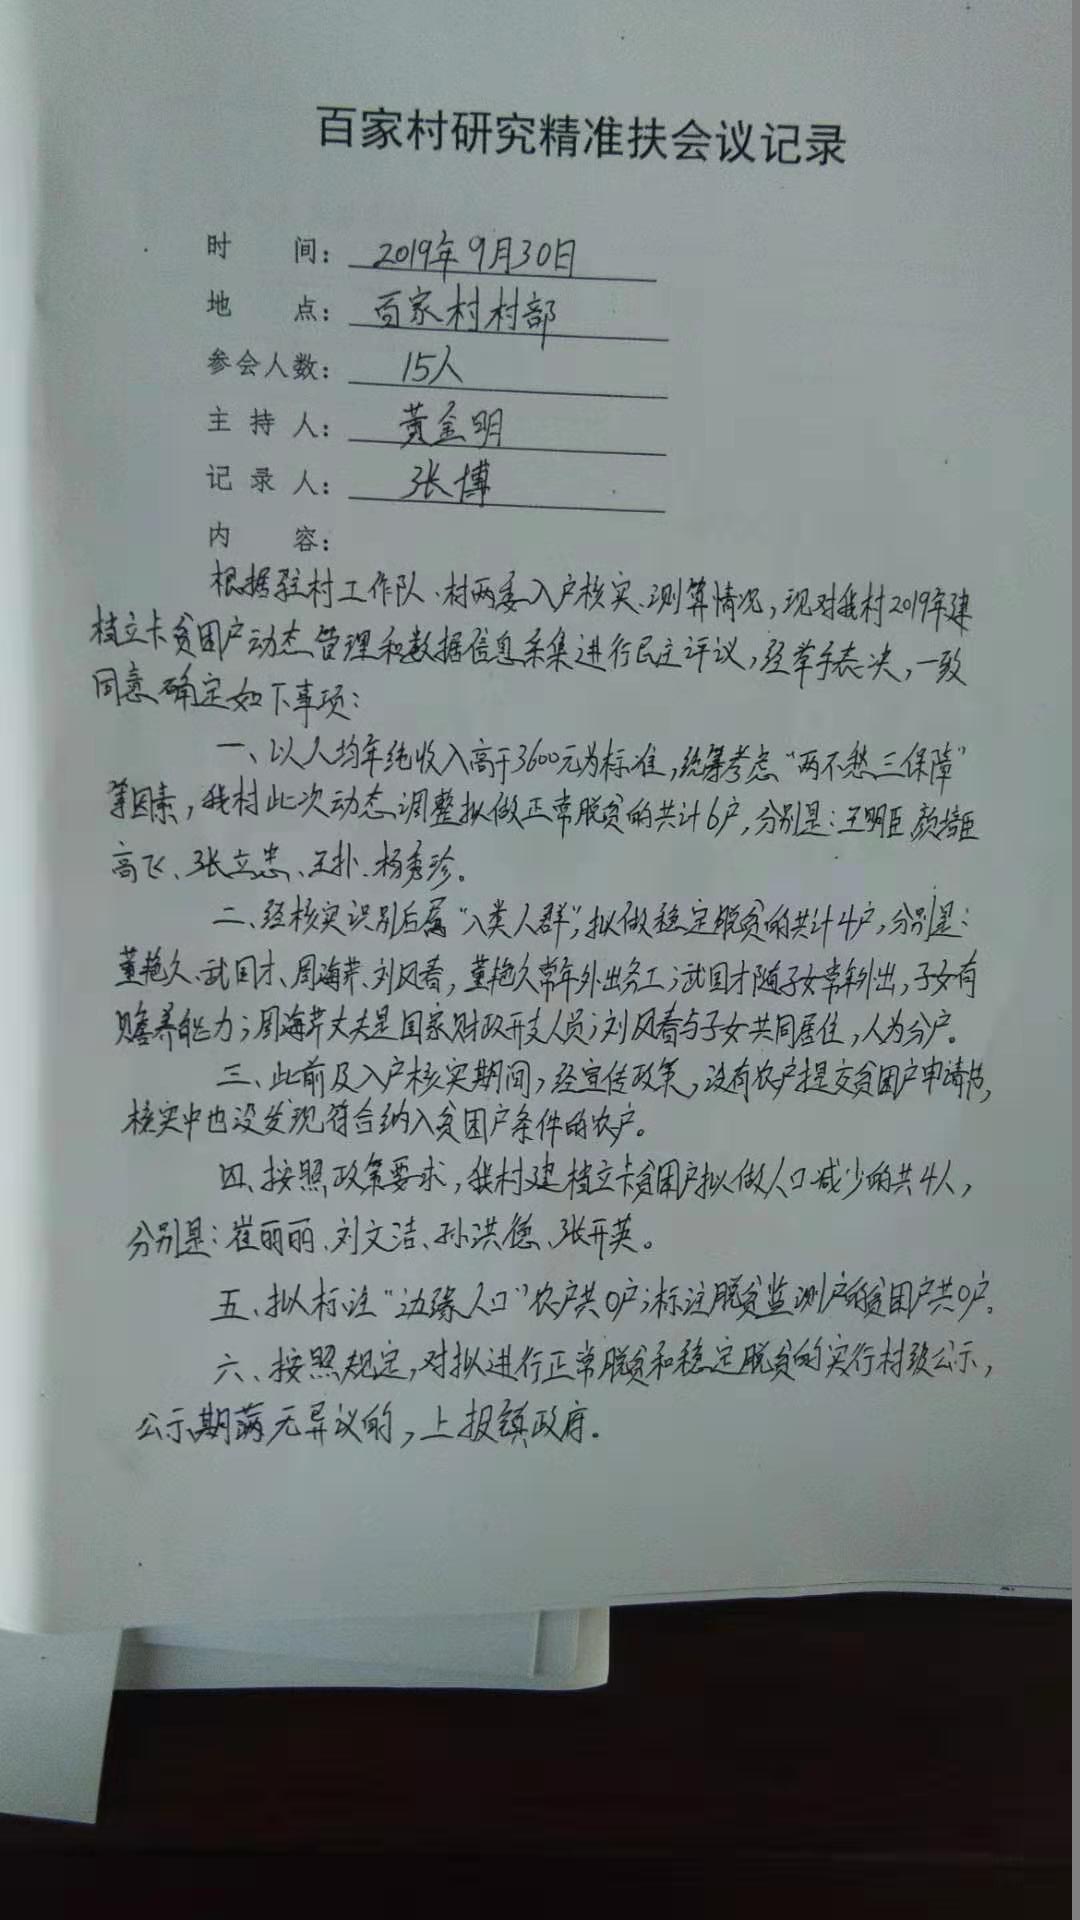 百家村研究精准扶会议记录
时 间：2019年9月30日
地 点：百家村村部
参会人数：15人
主 持 人：黄金明
记 录 人：张博
内 容：
根据驻村工作队、村两委入户核实、测算情况，现对我村2019年建
档立卡贫困户动态管理和数据信息采集进行民主评议，经举手表决，一致
同意确定如下事项：
一、以人均年纯收入高于3600元为标准，统筹考虑“两不愁三保障”
等因素，我村此次动态调整拟做正常脱贫的共计6户，分别是：王明臣 颜培臣
高飞、张立忠、王扑、杨秀珍。
二、经核实识别后属“八类人群”，拟做稳定脱贫的共计4户，分别是：
董艳久、武国才、周海芹、刘凤春，董艳久常年外出务工；武国才随子女常年外出，子女有
赡养能力；周海芹丈夫是国家财政开支人员；刘凤春与子女共同居住，人为分户。
三、此前及入户核实期间，经宣传政策，没有农户提交贫困户申请书，
核实中也没发现符合纳入贫困户条件的农户。
四、按照政策要求，我村建档立卡贫困户拟做人口减少的共4人，
分别是：崔丽丽、刘文洁、孙洪德、张开英。
五、拟标注“边缘人口”农户共0户；标注脱贫监测户的贫困户共0户。
六、按照规定，对拟进行正常脱贫和稳定脱贫的实行村级公示，
公示期满无异议的，上报镇政府。